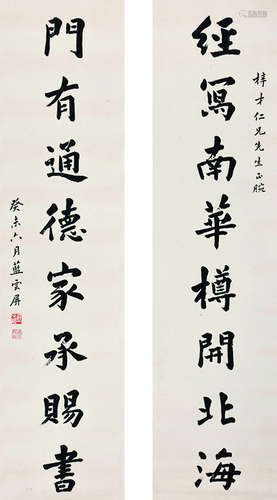 經寫南華樽開北海
梓才仁兄先生正腕
門有通德家承賜書
癸未六月藍雲屏